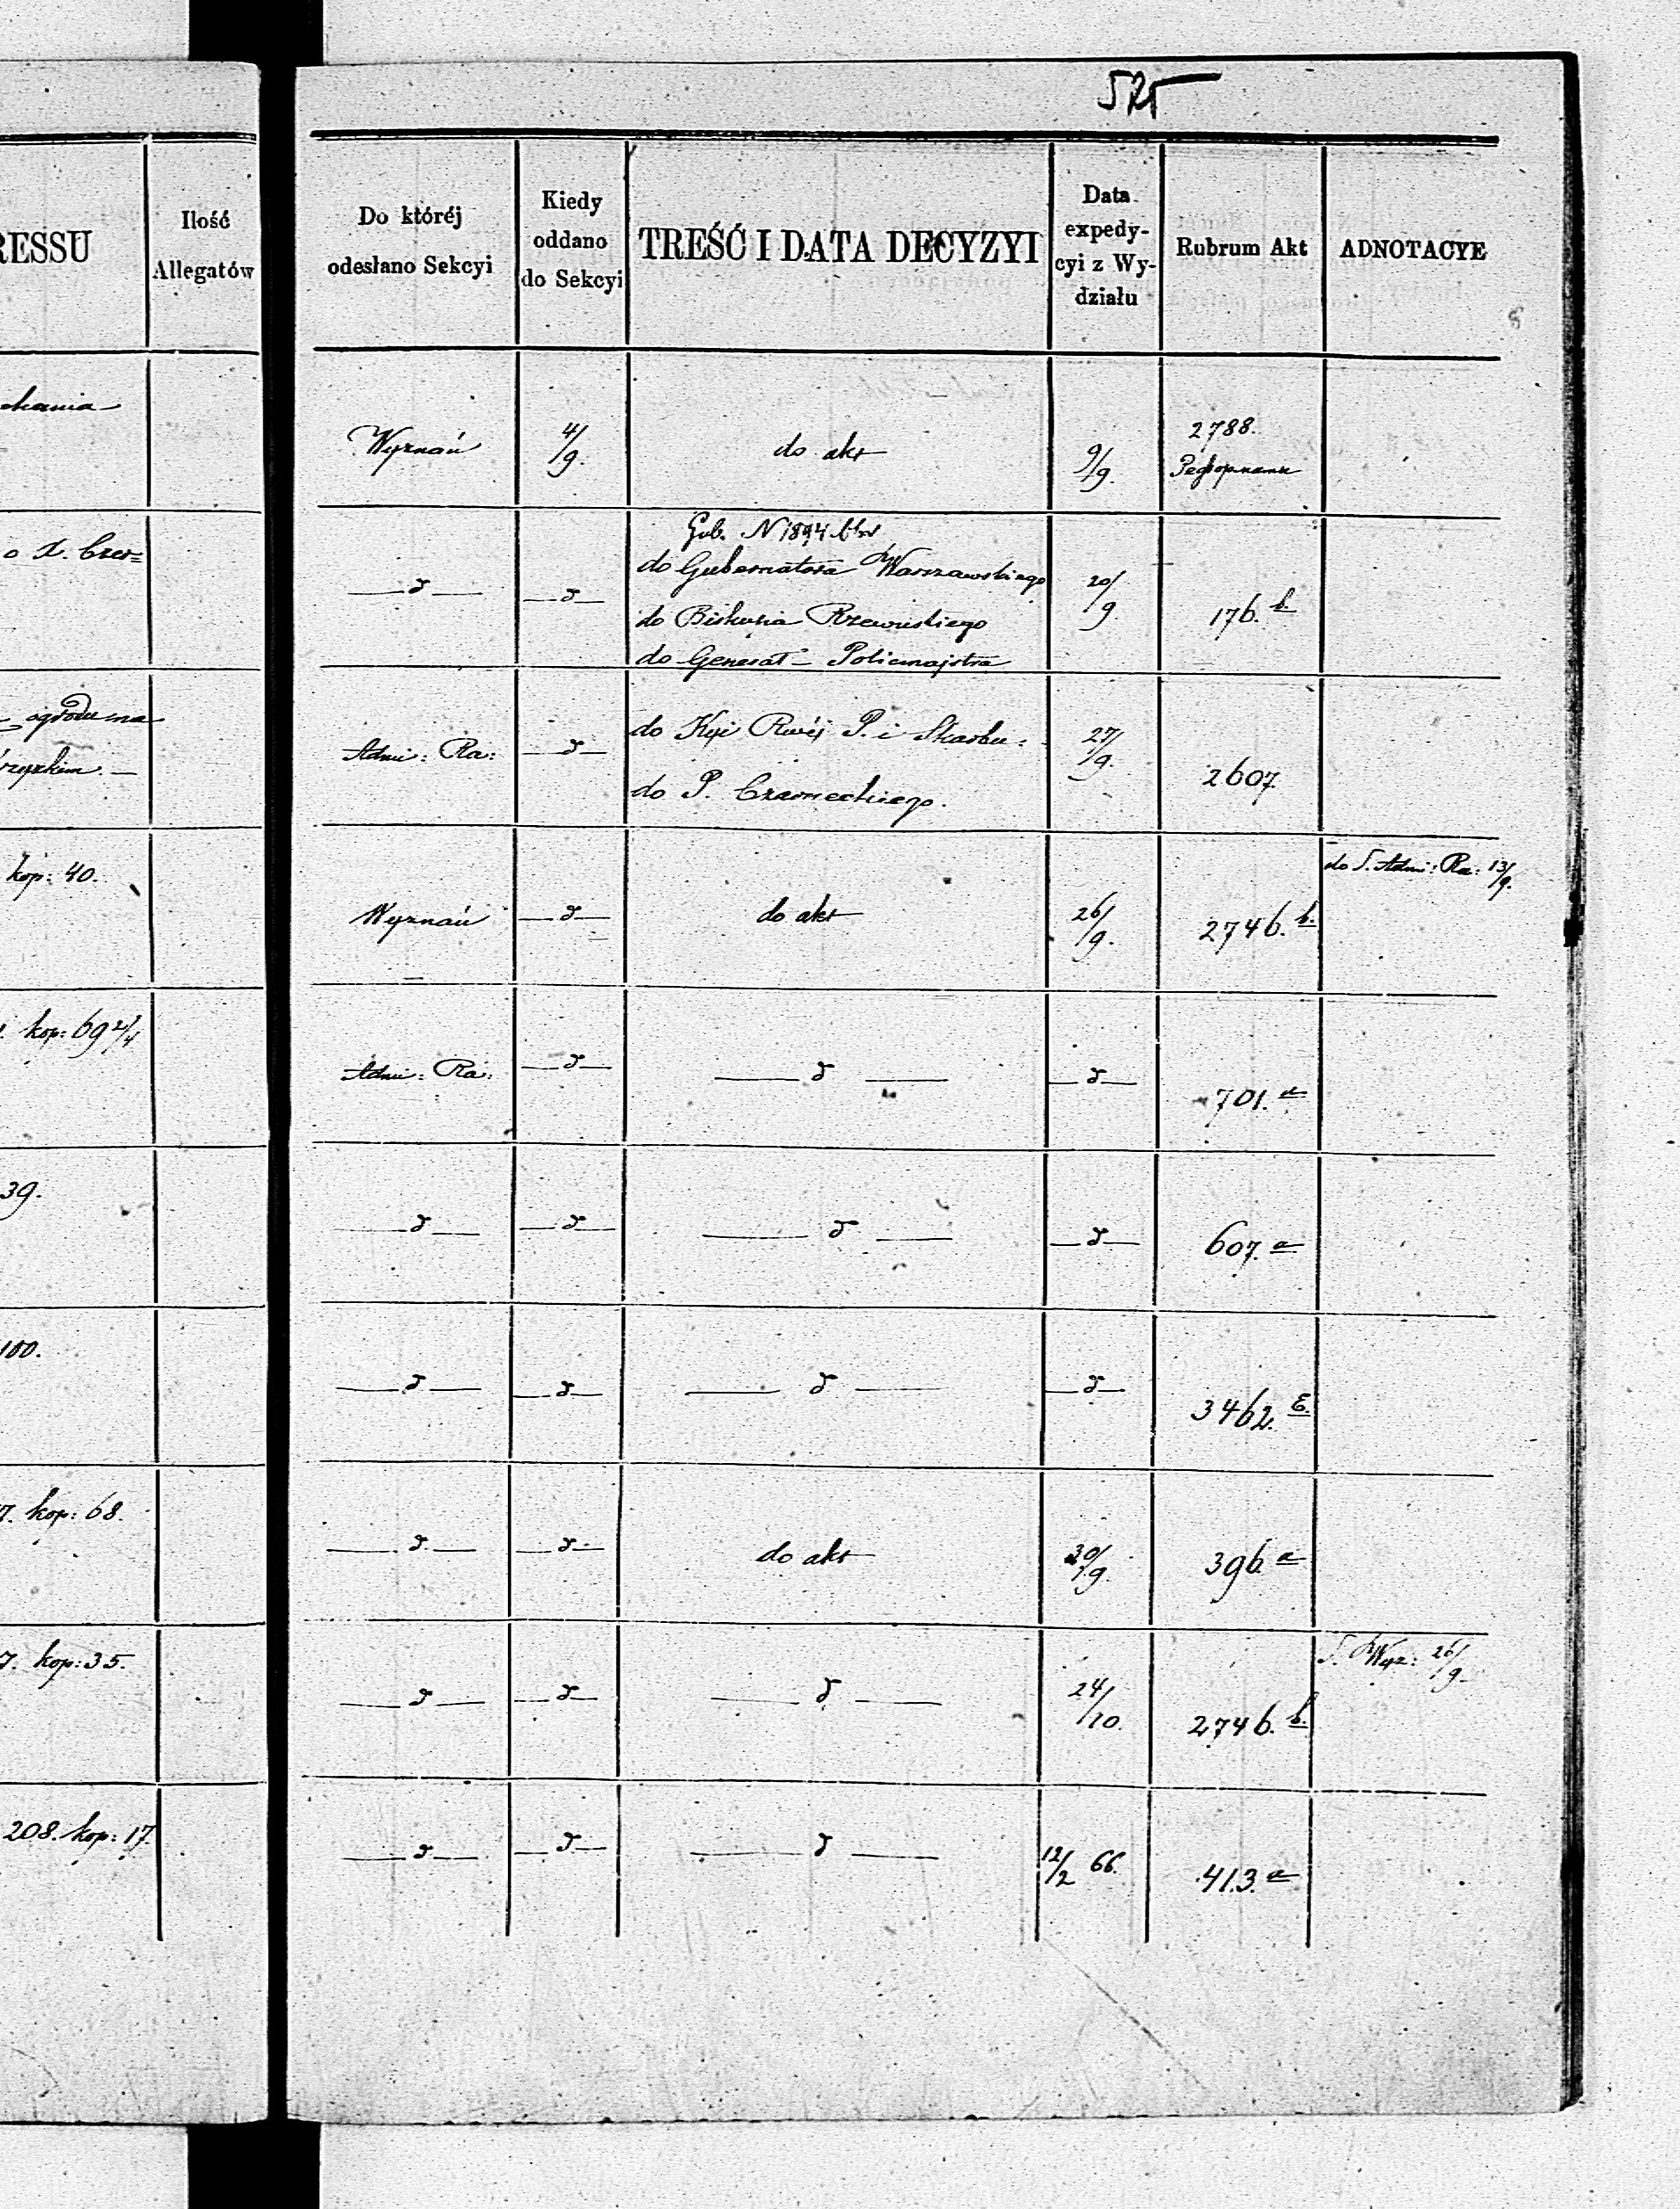 525
RESSU
Ilość
Allegatów
Do któréj
odesłano Sekcyi
Kiedy
oddano
do Sekcyi
TREŚĆ I DATA DECYZYI
Data
expedy-
cyi z Wy-
działu
Rubrum Akt
ADNOTACYE
chania
Wyznań
4/9.
do akt
9/9.
2788.
o X. Czer=
Gub. N 1894
do Gubernatora Warszawskiego
do Biskupa Rzewuskiego
do Generał-Policmajstra
—d—
—d—
20/9.
176. b.
ogrodu na
do Kyi Rwéj P. i Skarbu.
do P. Czarneckiego.
Admi: Ra:
—d—
27/9.
2607.
kop: 40.
Wyznań
—d—
do akt
26/9.
2746. b.
do S. Admi: Ra: 13/9.
kop: 69 2/4
Admi: Ra:
—d—
—d—
—d—
701. a
39.
—d—
—d—
—d—
—d—
607. a
100.
—d—
—d—
—d—
—d—
3462. E.
7. kop: 68.
—d—
—d—
do akt
30/9.
396. a
7. kop: 35.
—d—
—d—
—d—
24/10.
2746. b.
S. Wyz: 26/9.
208. kop: 17.
—d—
—d—
—d—
12/2 66.
413. a